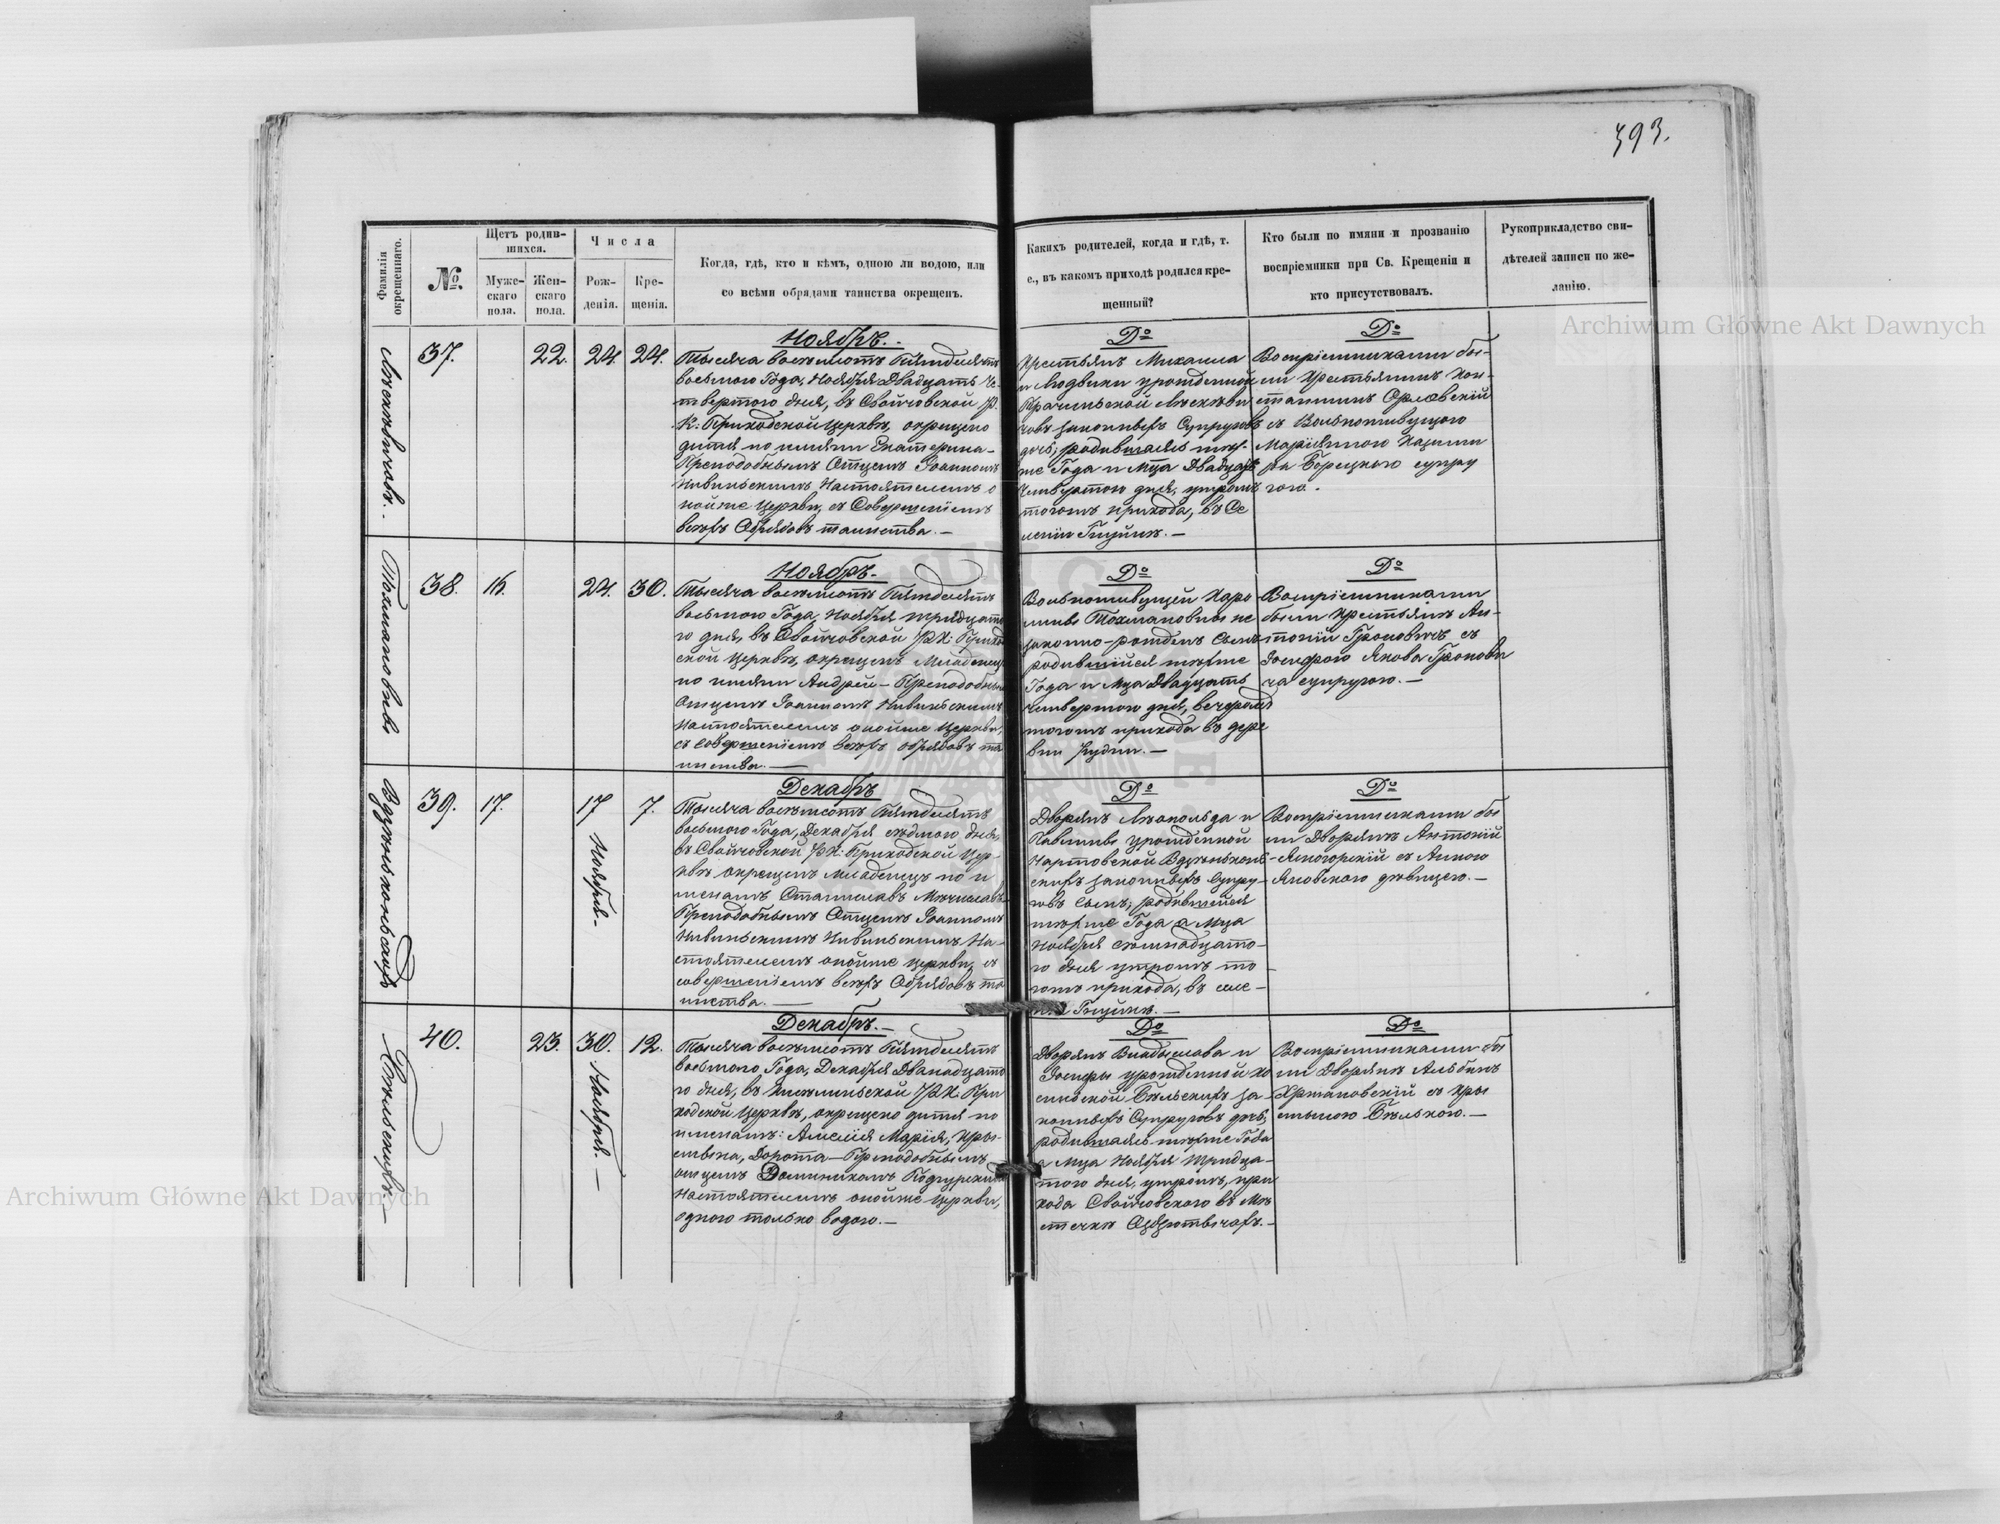 393.
Фамилія окрещеннаго.
№.
Щетъ родив-
шихся.
Муже-
скаго
пола.
Жен-
скаго
пола.
Числа
Рож-
денія.
Кре-
щенія.
Когда, гдѣ, кто и кѣмъ, одною ли водою, или
со всѣми обрядами таинства окрещенъ.
Какихъ родителей, когда и гдѣ, т.
е., въ какомъ приходѣ родился кре-
щенный?
Кто были по имяни и прозванію
воспріемники при Св. Крещеніи и
кто присутствовалъ.
Рукоприкладство сви-
дѣтелей записи по же-
ланію.
37.
22.
24.
24.
Ноябрь.-
Тысяча восемьсотъ Пятьдесятъ
восьмого Года, Ноября Двадцать Че-
твертого дня, въ Свойчовской Р.
К: Приходской Церквѣ, окрещено
дитя по имяни Екатерина-
Преподобнымъ Отцемъ Іоанномъ
Настоятелемъ о
нойже Церкви, съ Совершеніемъ
всѣхъ Обрядовъ таинства.-
Dº
Крестьянъ Михаила
и Людвики урожденной
законныхъ Супруговъ
дочь, родившаяся тѣхъ-
же Года и Мца Двадцать
четвертого дня, утромъ
тогожъ прихода, въ Се
леніи
Dº
Воспріемниками бы-
ли Крестьянинъ Кон-
стантинъ Орловскій
съ Вольноживущого
Маріянною Казими
ра Борецкого супру
гого.-
Тохмановичъ
38.
16.
24.
30.
Ноябрь.-
Тысяча восемьсотъ Пятьдесятъ
восьмого Года, Ноября тридцато
го дня, въ Свойчовской Р.К: Приход
ской Церквѣ, окрещенъ Младенецъ
по имяни Андрей- Преподобнымъ
Отцемъ Іоанномъ
Настоятелемъ онойже Церкви,
съ Совершеніемъ всѣхъ обрядовъ та
инства.-
Dº
Вольноживущей Каро
лины Тохмановны не
законно-рожденъ Сынъ
родившійся тѣхже
Года и Мца Двадцать
четвертого дня, вечеромъ
тогожъ прихода въ дере
вни Рудни.-
Dº
Воспріемниками
были Крестьянъ Ан-
тоній Гроновичъ съ
Іосифою Якова Гронови
ча супругою.-
39.
17.
17
Ноября-
7.
Декабрь
Тысяча восемьсотъ Пятьдесятъ
восьмого Года, Декабря седмого дня,
въ Свойчовской Р.К: Приходской Цер-
квѣ окрещенъ младенецъ по и
менамъ Станиславъ Мечиславъ
Преподобнымъ Отцемъ Іоанномъ
На-
стоятелемъ онойже Церкви, съ
совершеніемъ всѣхъ Обрядовъ та
инства.-
Dº
Дворянъ Леопольда и
Павлины урожденной
Нартовской
скихъ законныхъ Супру-
говъ Сынъ, родившійся
тѣхже Года а Мца
Ноября семнадцато-
го дня утромъ то
гожъ прихода, въ селе-
Dº
Воспріемниками бы
ли Дворянъ Антоній
Ясногорскій съ Анною
Яновского дѣвицею.-
Бѣльскихъ-
40.
23.
30.
Ноября.-
12.
Декабрь.-
Тысяча восемьсотъ Пятьдесятъ
восьмого Года, Декабря Двѣнадцато
го дня, въ Киселинской Р.К: При
ходской Церквѣ, окрещено дитя по
именамъ: Амелія Марія, Кры-
стына, Дорота-Преподобнымъ
отцемъ Доминикомъ
Настоятелемъ онойже Церкви,
одного только водого.-
Dº
Дворянъ Владыслава и
Іосифы урожденной Ко
Бѣльскихъ за
конныхъ Супруговъ дочь,
родившаясь тѣхже Года
а Мца Ноября тридца-
того дня, утромъ, при
хода Свойчовского въ Мѣ
стечкѣ
Dº
Воспріемниками бы
ли Дворянъ Альбинъ
Хржановскій съ Кры
стыною Бѣльского.-
Archiwum Główne Akt Dawnych
Archiwum Główne Akt Dawnych